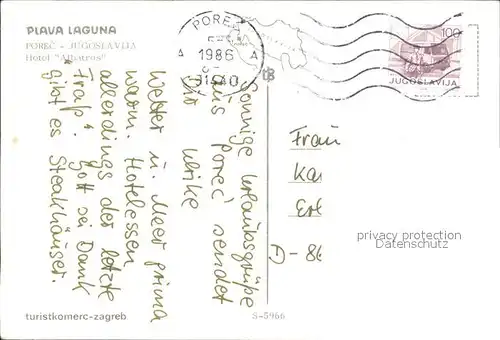 PLAVA LAGUNA
POREČ - JUGOSLAVIJA
Hotel "Albatros"
POREČ
1986
A A
100
JUGOSLAVIJA
Sonnige Urlaubsgrüße
aus Poreč sendet
Dir Ulrike
Wetter u. Meer prima
warm. Hotelessen
allerdings der letzte
"Fraß". Gott sei Dank
gibt es Steakhäuser.
Frau
Ka
Erl
D-86
privacy protection
Datenschutz
turistkomerc-zagreb
S-5966